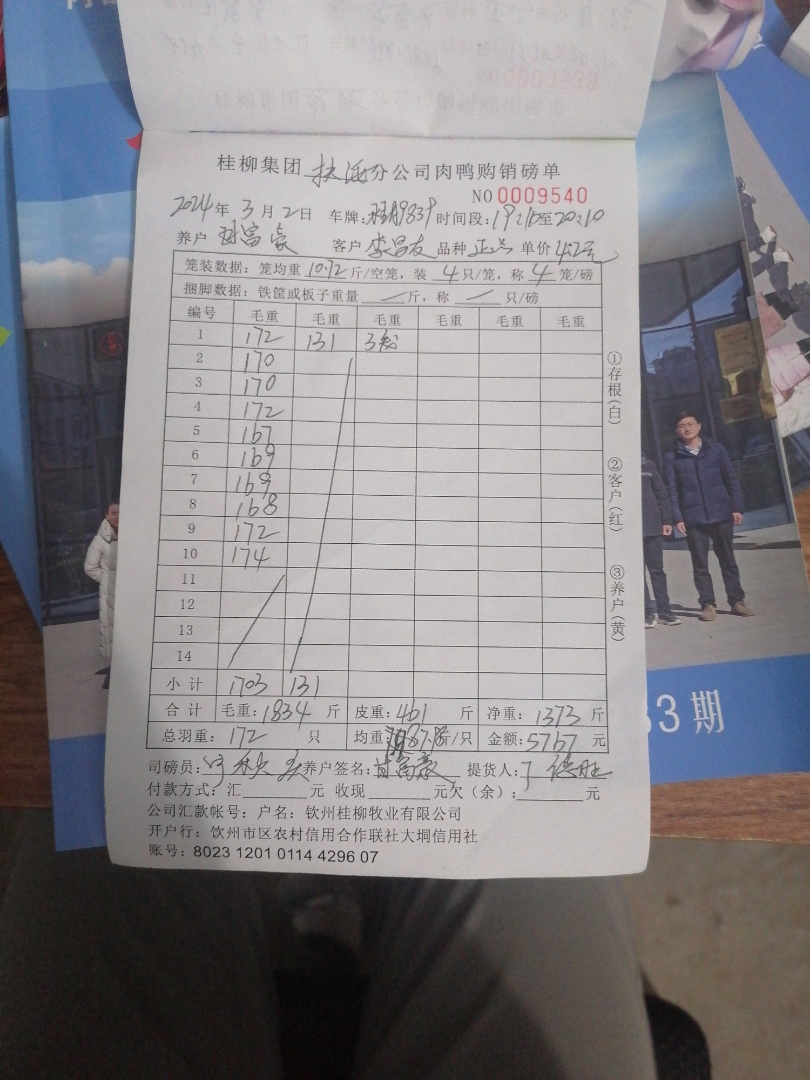 NO 0009239
桂柳集团 扶涵分公司肉鸭购销磅单
NO 0009540
2024年3月2日 车牌: A9839 时间段:19:10至20:10
养户 富豪 客户 李昌友 品种 正品 单价 4.2元
笼装数据:笼均重 10.72 斤/空笼,装 4 只/笼,称 4 笼/磅
捆脚数据:铁筐或板子重量 / 斤,称 / 只/磅
编号 毛重 毛重 毛重 毛重 毛重 毛重
1 172 131 3笼
2 170
3 170
4 172
5 167
6 169
7 169
8 168
9 172
10 174
11
12
13
14
小计 1703 131
合计 毛重:1834 斤 皮重:461 斤 净重:1373 斤
总羽重:172 只 均重: 斤/只 金额:5767 元
司磅员: 养户签名: 富豪 提货人:
付款方式:汇 元 收现 元欠(余): 元
公司汇款帐号:户名:钦州桂柳牧业有限公司
开户行:钦州市区农村信用合作联社大垌信用社
账号:8023 1201 0114 4296 07
①存根(白)
②客户(红)
③养户(黄)
3期